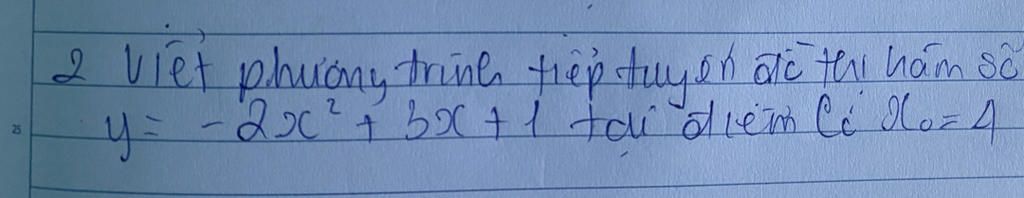 2 Viết phương trình tiếp tuyến đồ thị hàm số
y = -2x² + 3x + 1 tại điểm Có x₀ = 4